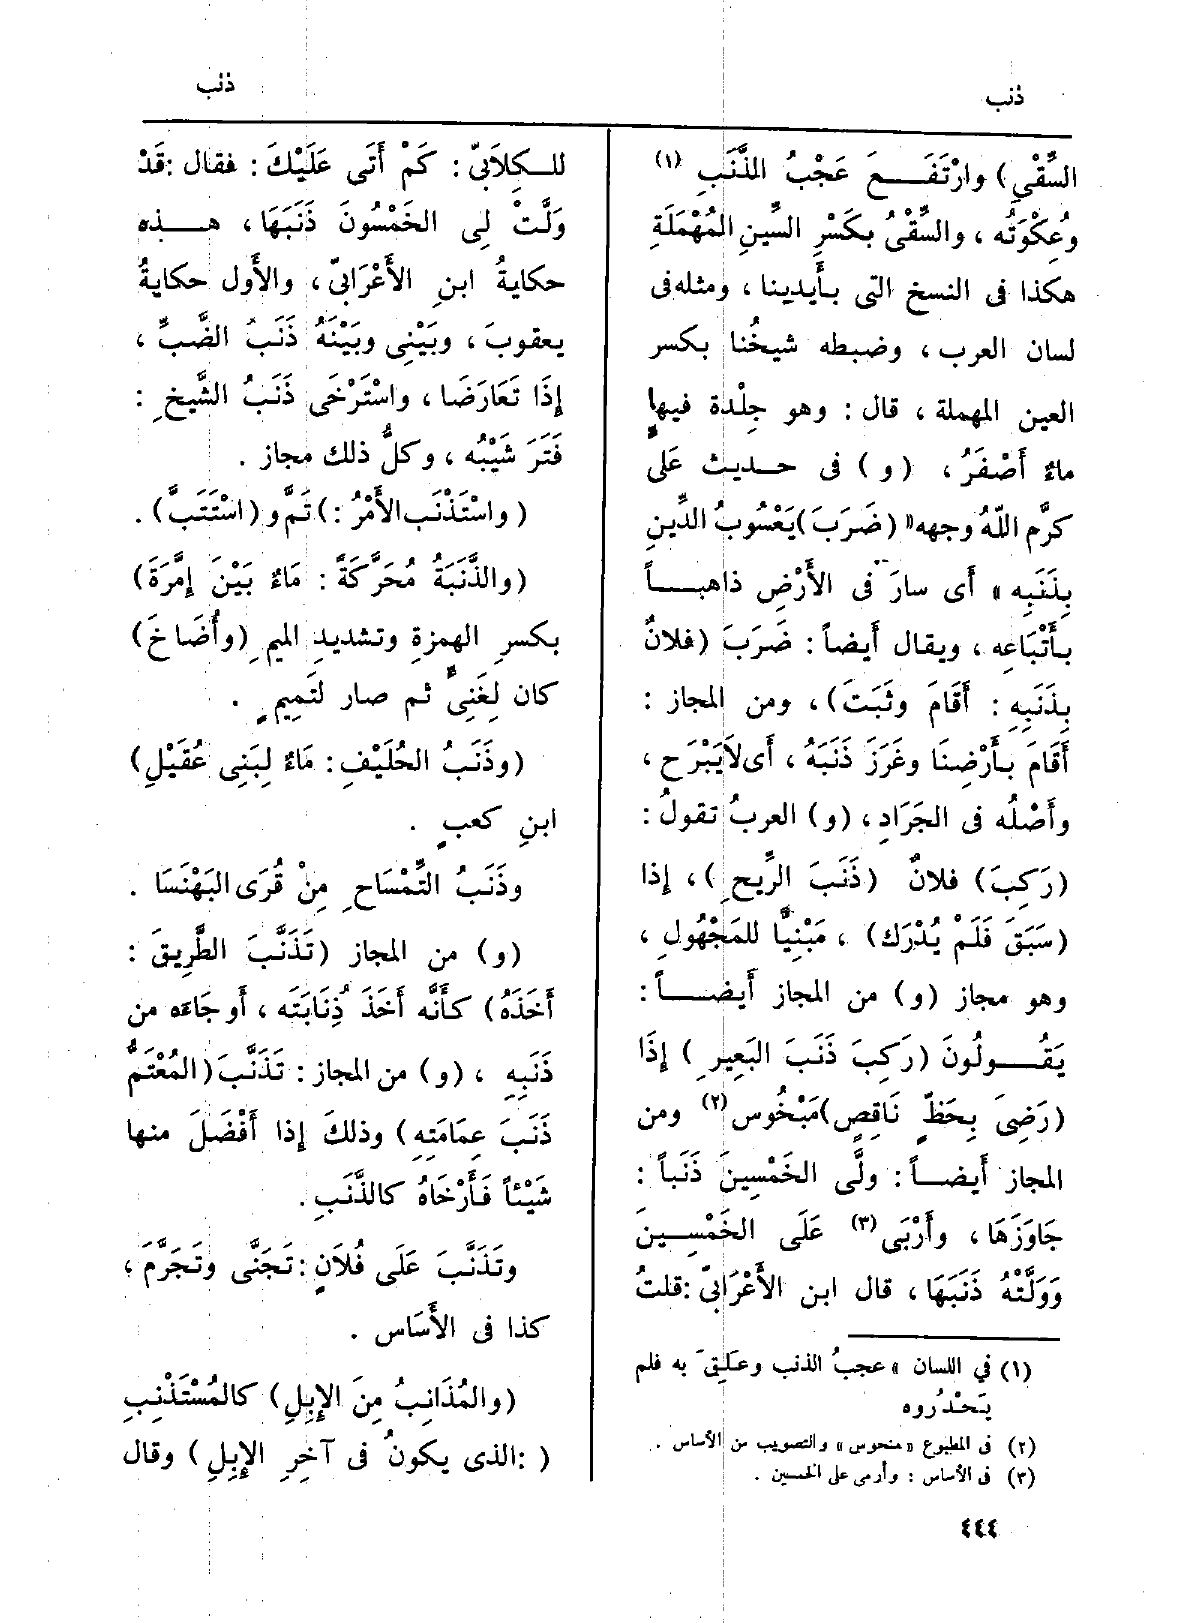 ذنب
ذنب
السِّقْيِ) وارْتَفَـــعَ عَجْبُ الذَّنَبِ (١)
وعُكْوَتُه ، والسِّقْىُ بكَسْرِ السِّينِ المُهْمَلَةِ
هكذا فى النسخ التى بأَيدينا ، ومثله فى
لسان العرب ، وضبطه شيخُنا بكسر
العين المهملة ، قال : وهو جِلْدة فيها
ماءٌ أَصْفَرُ ، (و) فى حــديث عَلَى
كرَّم اللهُ وجهه« (ضَرَبَ) يَعْسُوبُ الدِّينِ
بِذَنَبِه » أَى سارَ فى الأَرْضِ ذاهبــــاً
بأَتْبَاعِه ، ويقال أَيضاً : ضَرَبَ (فلانٌ
بِذَنَبِهِ : أَقَامَ وثَبَتَ) ، ومن المجاز :
أَقَامَ بأَرْضِنَا وغَرَزَ ذَنَبَهُ ، أَى لاَيَبْرَح ،
وأَصْلُه فى الجَرَادِ ، (و) العربُ تقولُ :
(رَكِبَ) فلانٌ (ذَنَبَ الرِّيحِ) ، إذا
(سَبَقَ فَلَمْ يُدْرَك) ، مَبْنِيًّا للمَجْهُولِ ،
وهو مجاز (و) من المجاز أَيضـــاً :
يَقُـــولُونَ (رَكِبَ ذَنَبَ البَعِيرِ ) إذَا
(رَضِىَ بِحَظٍّ نَاقِصٍ) مَبْخُوس (٢) ومن
المجاز أَيضـــاً : ولَّى الخَمْسِينَ ذَنَباً :
جَاوَزَهَا ، وأَرْبَى (٣) عَلَى الخَمْسِــينَ
وَوَلَّتْهُ ذَنَبَهَا ، قال ابن الأَعْرَابىّ : قلتُ
(١) في اللسان « عجبُ الذنب وعَلِقَ به فلم
يَحْدُروه
(٢) فى المطبوع «منحوس» والتصويب من الأساس .
(٣) فى الأساس : وأرمى على الخمسين .
للــكِلاَبىّ : كَمْ أَتَى عَلَيْكَ : فقال : قَدْ
وَلَّتْ لِى الخَمْسُونَ ذَنَبَهَا ، هــــذه
حكايةُ ابنِ الأَعْرَابىّ ، والأَول حكايةُ
يعقوبَ ، وبَيْنِى وبَيْنَهُ ذَنَبُ الضَّبِّ ،
إذَا تَعَارَضَا ، واسْتَرْخَى ذَنَبُ الشَّيخِ :
فَتَرَ شَيْبُه ، وكلُّ ذلك مجاز .
( واسْتَذْنَب الأَمْرُ : ) تَمَّ و (اسْتَتَبَّ) .
(والذَّنَبَةُ مُحَرَّكَةً : مَاءٌ بَيْنَ إمَّرَةَ )
بكسرِ الهمزةِ وتشديدِ الميمِ (وأُضَاخَ )
كان لِغَنِىٍّ ثم صار لتَمِيمٍ .
(وذَنَبُ الحُلَيْفِ : مَاءٌ لِبَنِى عُقَيْلِ )
ابنِ كعبٍ .
وذَنَبُ التِّمْسَاحِ مِنْ قُرَى البَهْنَسَا .
(و) من المجاز (تَذَنَّبَ الطَّرِيقَ :
أَخَذَهُ) كأَنَّه أَخَذَ ذُنَابَتَه ، أَو جَاءَه من
ذَنَبِهِ ، (و) من المجاز : تَذَنَّبَ (المُعْتَمُّ
ذَنَبَ عِمَامَتِهِ) وذلكَ إذا أَفْضَلَ منها
شَيْئاً فَأَرْخَاهُ كالذَّنَبِ .
وتَذَنَّبَ عَلَى فُلاَنٍ : تَجَنَّى وتَجَرَّمَ ،
كذا فى الأَسَاس .
(والمُذَانِبُ مِنَ الإبِلِ) كالمُسْتَذْنِبِ
( : الذى يكونُ فى آخِرِ الإبِلِ ) وقال
٤٤٤